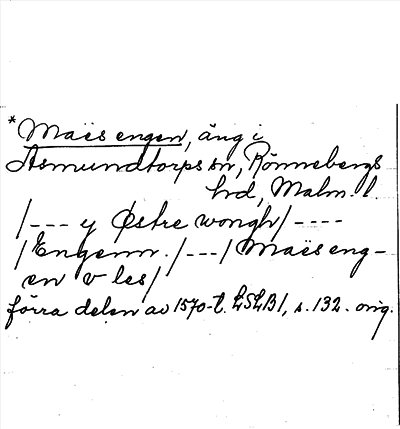 *Maës engen, äng i
Asmundtorps sn, Rönnebergs
hd, Malm. l.
/--- y Østre wongh/----
/Engenn./---/Maës eng-
en v les/
förra delen av 1570-t. LSLB1, s. 132. orig.